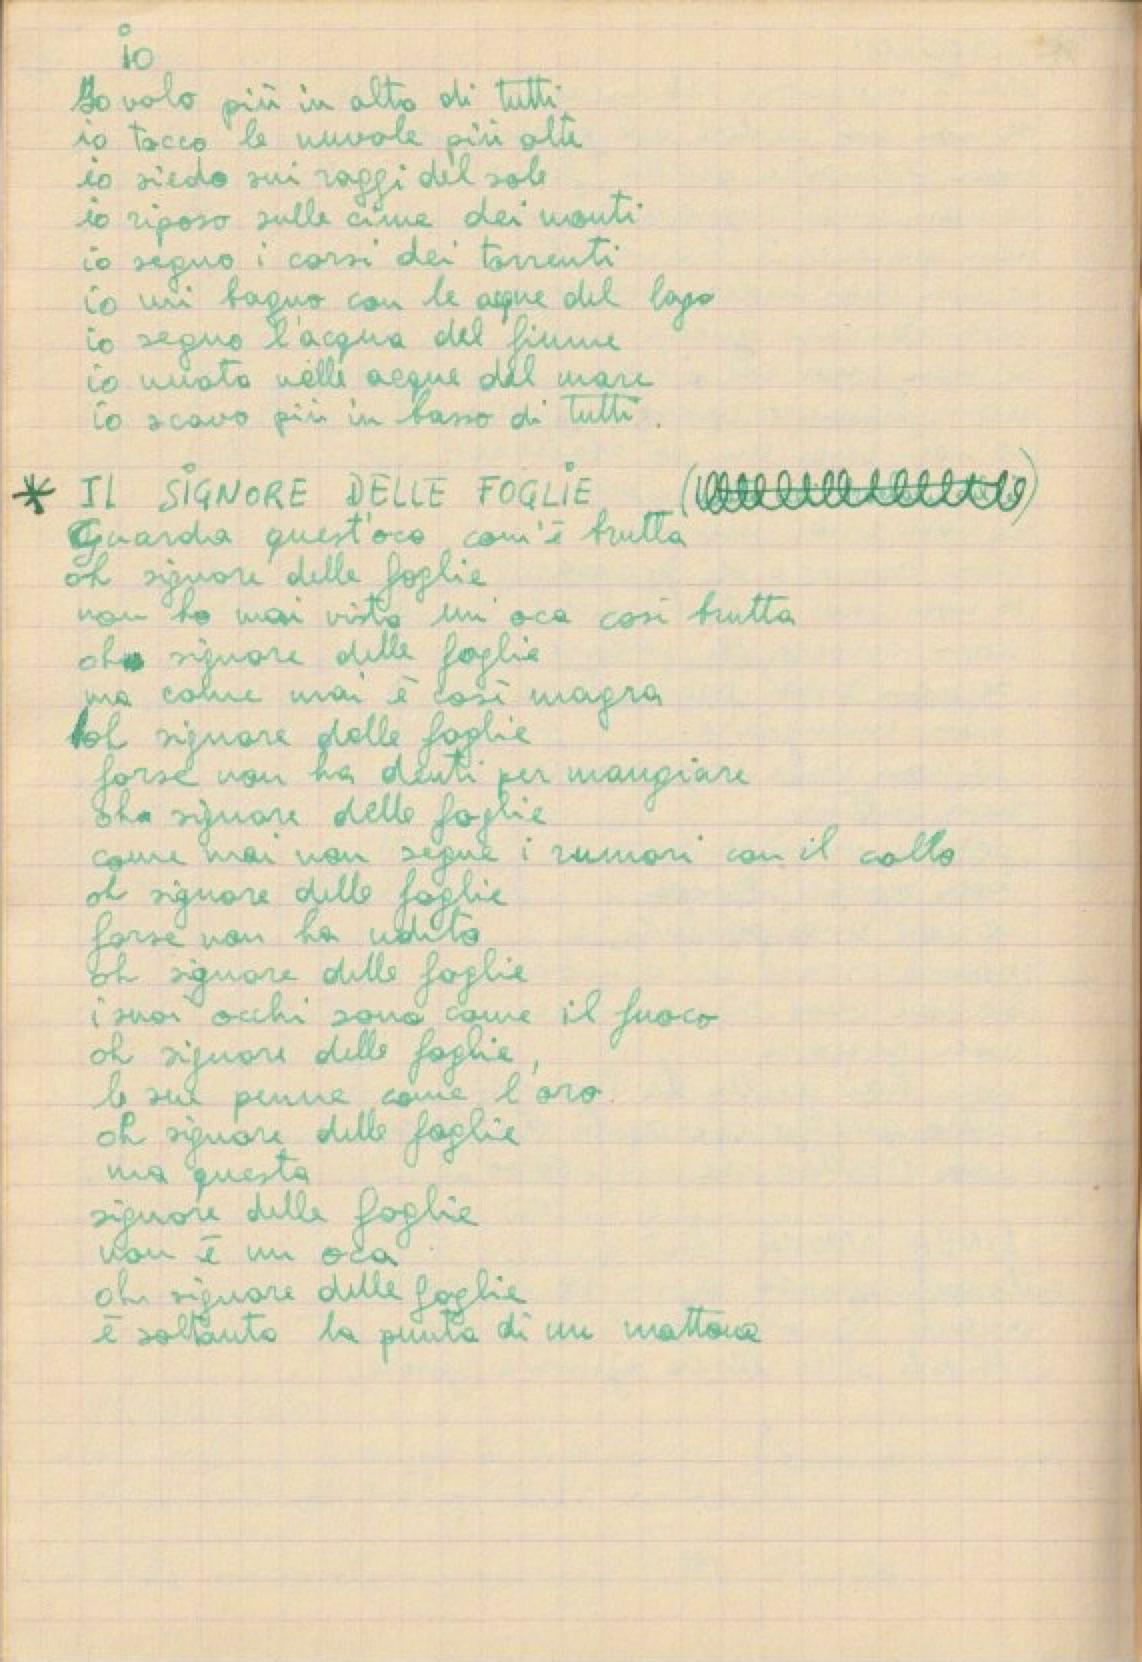 io
Io volo più in alto di tutti
io tocco le nuvole più alte
io siedo sui raggi del sole
io riposo sulle cime dei monti
io seguo i corsi dei torrenti
io mi bagno con le acque del lago
io seguo l'acqua del fiume
io nuoto nelle acque del mare
io scavo più in basso di tutti.
* IL SIGNORE DELLE FOGLIE
Guarda quest'oca com'è brutta
oh signore delle foglie
non ho mai visto un'oca così brutta
oh signore delle foglie
ma come mai è così magra
oh signore delle foglie
forse non ha denti per mangiare
oh signore delle foglie
come mai non segue i rumori con il collo
oh signore delle foglie
forse non ha udito
oh signore delle foglie
i suoi occhi sono come il fuoco
oh signore delle foglie,
le sue penne come l'oro
oh signore delle foglie
ma questa
signore delle foglie
non è un oca
oh signore delle foglie
è soltanto la punta di un mattone